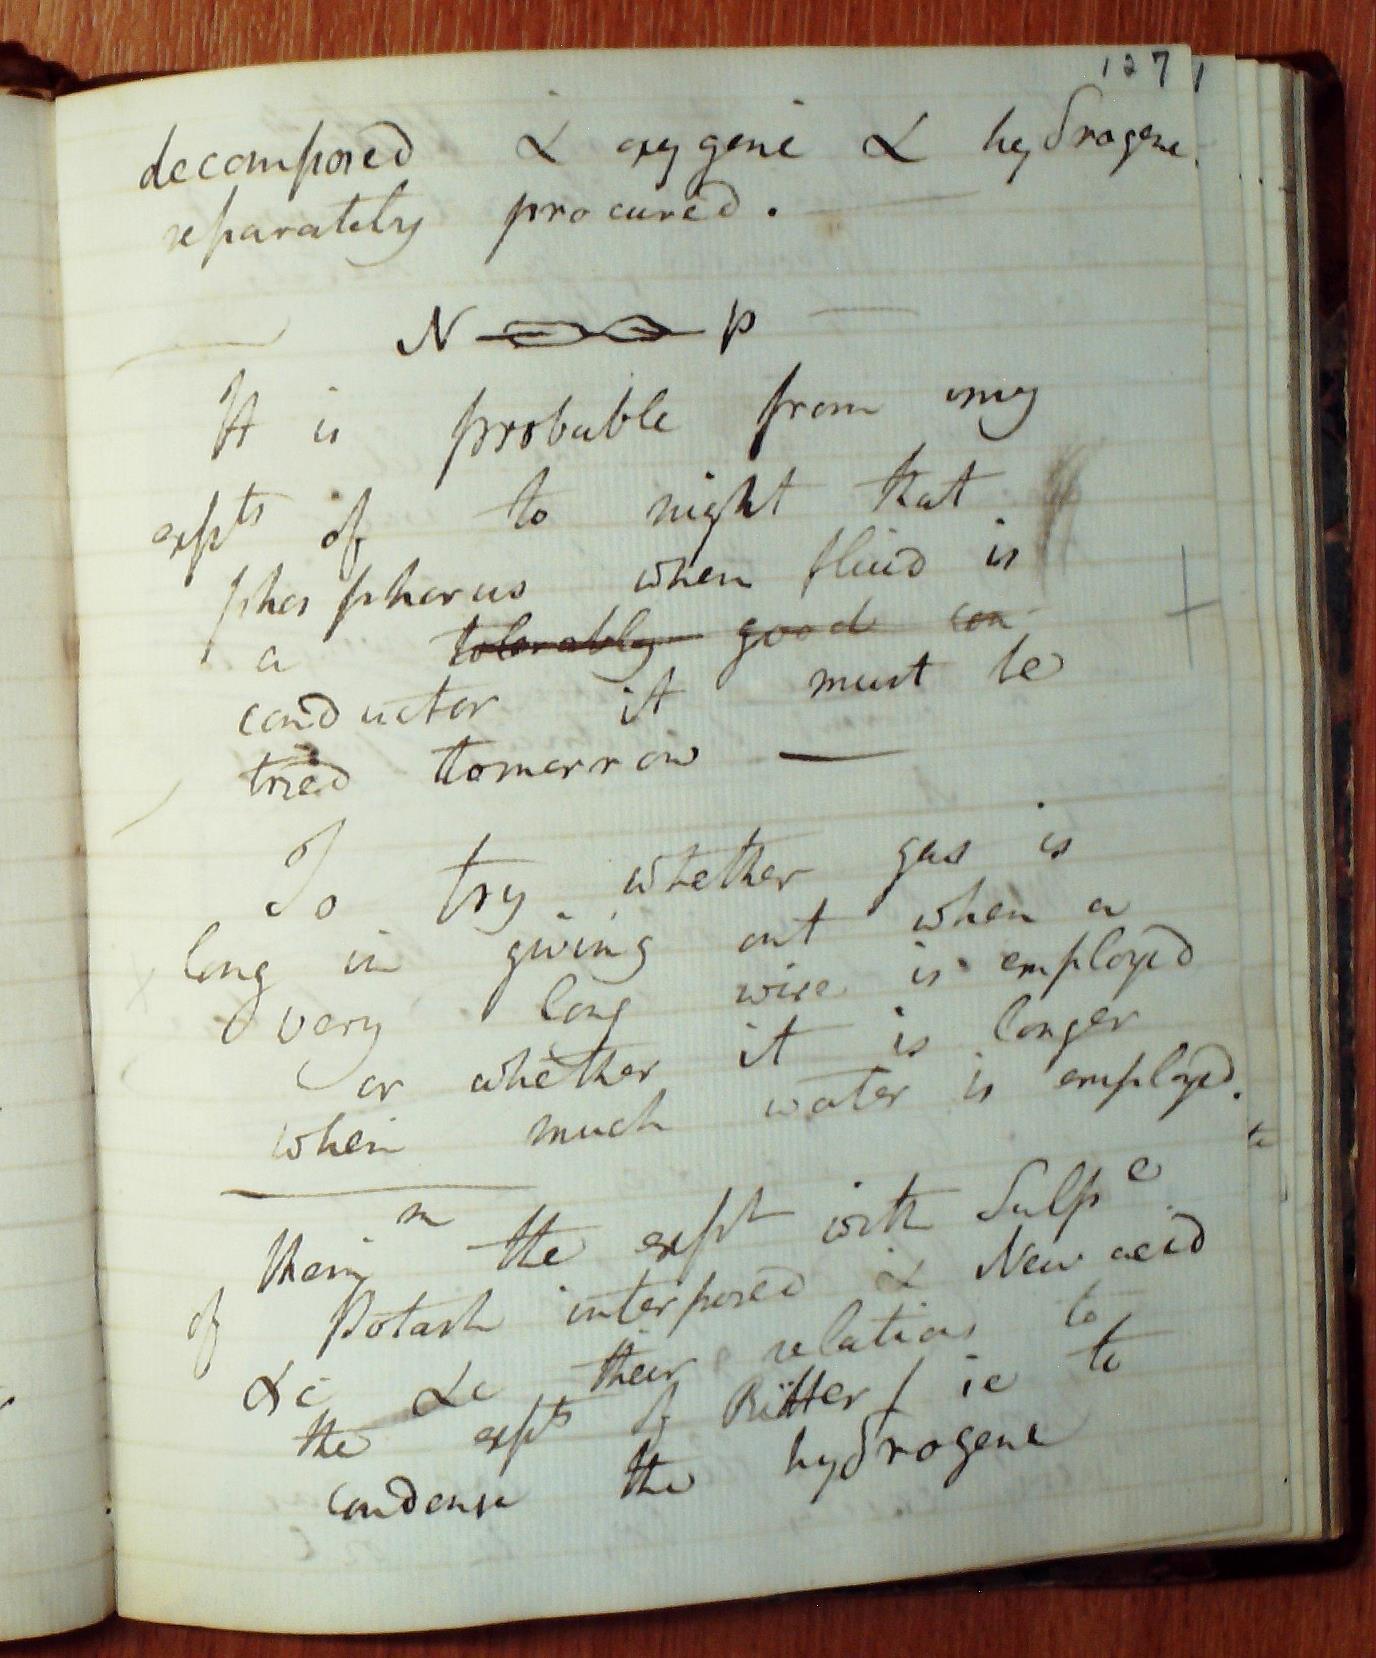 127
decomposed & oxygene & hydrogene
separately procured.
N P
It is probable from my
expts of to night that
phosphorus when fluid is
a tolerably good con
conductor it must be
tried tomorrow —
To try whether gas is
long in giving out when a
very long wire is employed
or whether it is longer
when much water is employed.
m
the expt with Sulpe
of Potash interposed & New acid
&c &c their relations to
the expts of Ritter / ie to
condense the hydrogene